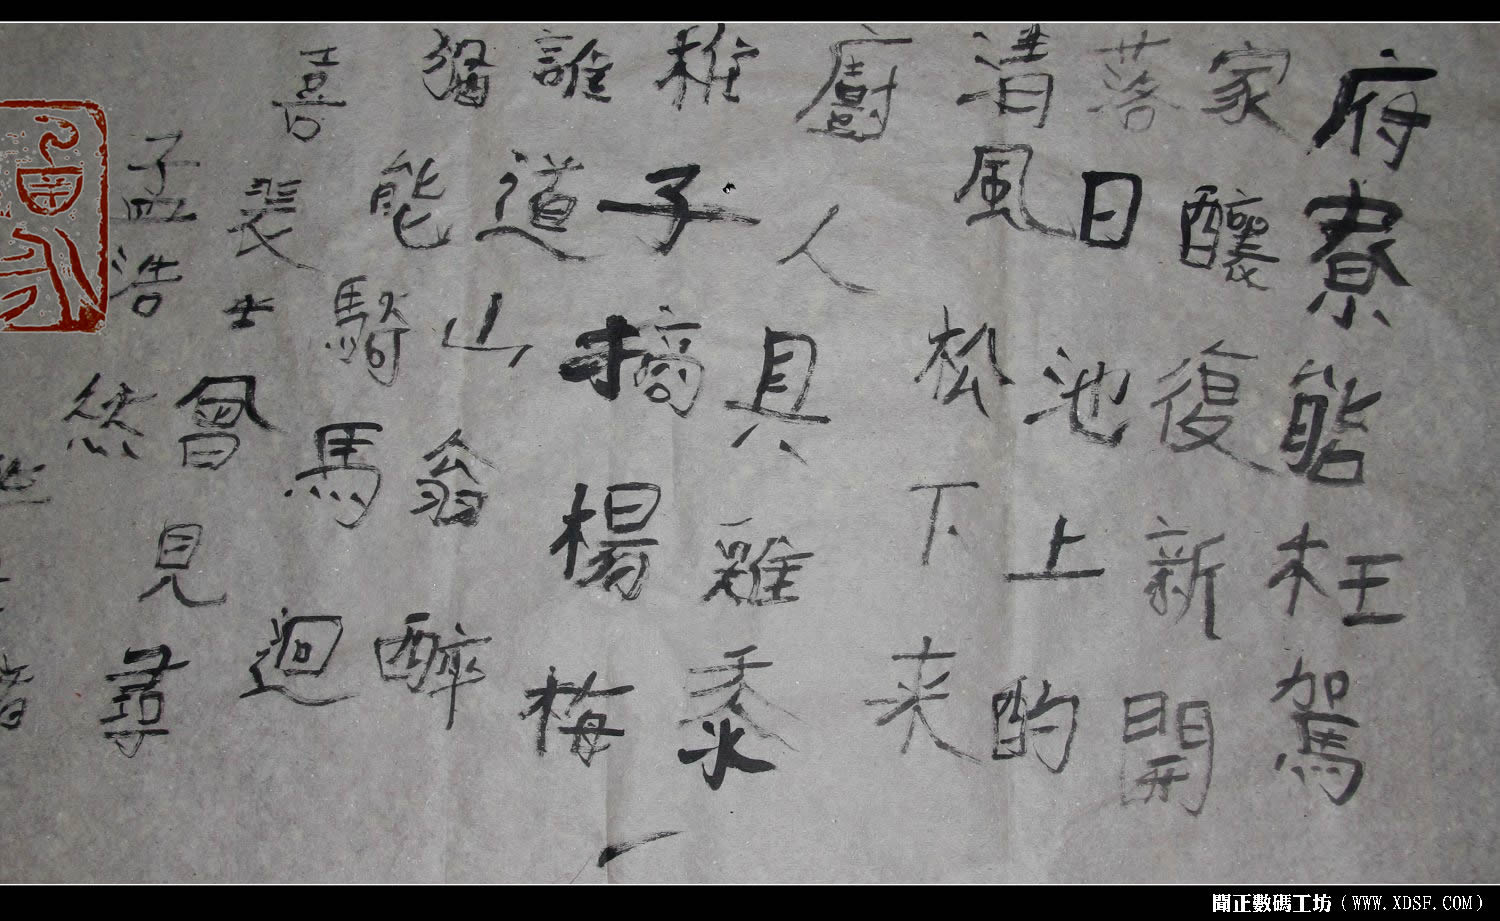 府寮能枉駕
家醞復新開
落日池上酌
清風松下來
廚人具雞黍
稚子摘楊梅
誰道山翁醉
猶能騎馬迴
喜裴士曾見尋
孟浩然
聞正數碼工坊（WWW.XDSF.COM）